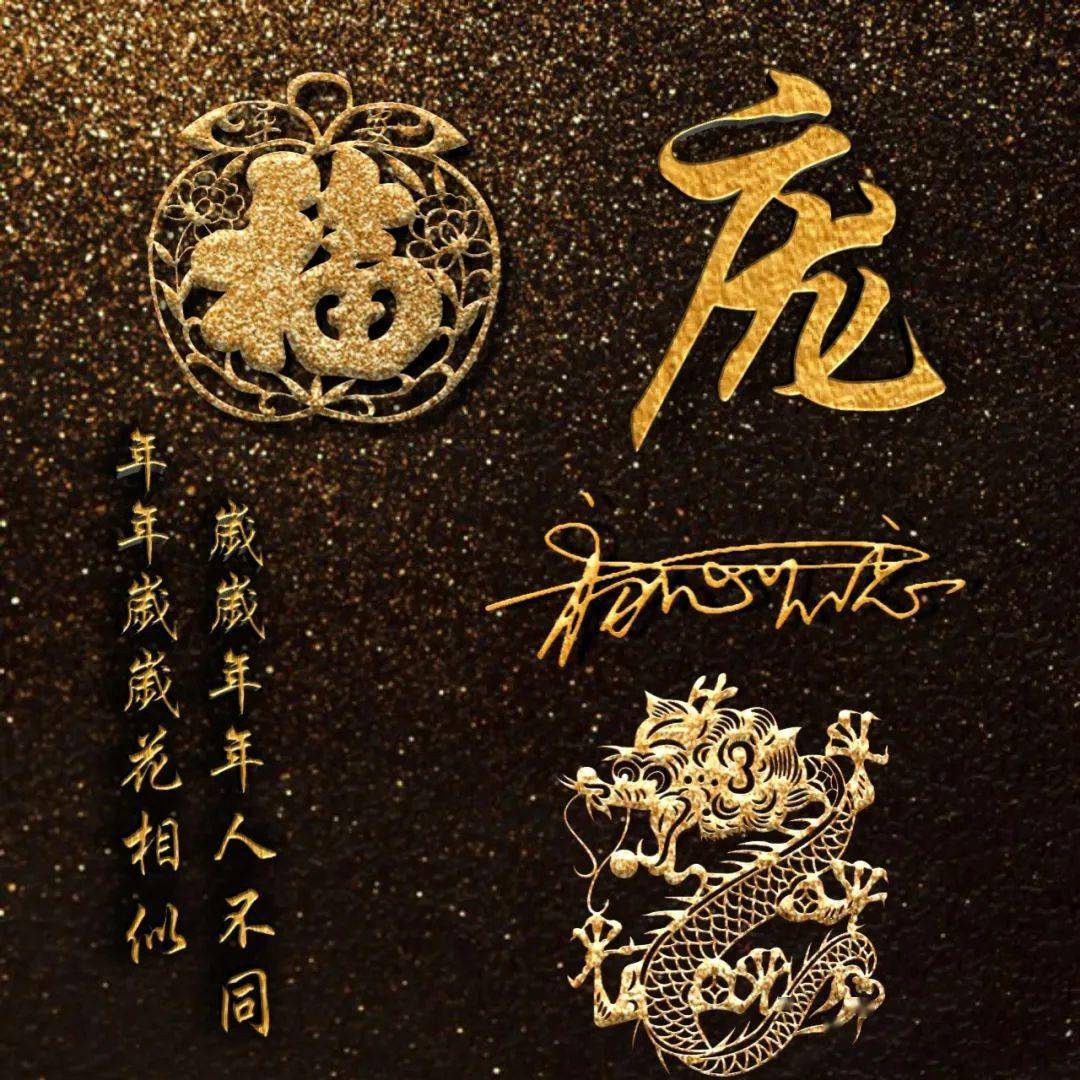 福
庞
年年歲歲花相似
歲歲年年人不同